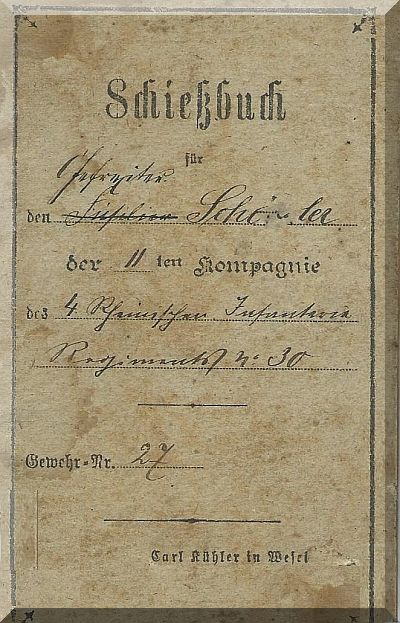 Schießbuch
für
Gefreiter
den Füsilier
der 11 ten Kompagnie
des 4 Rheinischen Infanterie
Regiments No 30
Gewehr-Nr. 27
Carl Kühler in Wesel